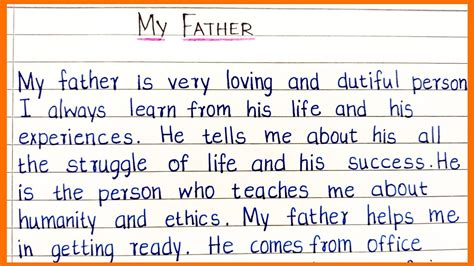 My Father
My father is very loving and dutiful person
I always learn from his life and his
experiences. He tells me about his all
the struggle of life and his success. He
is the person who teaches me about
humanity and ethics. My father helps me
in getting ready. He comes from office